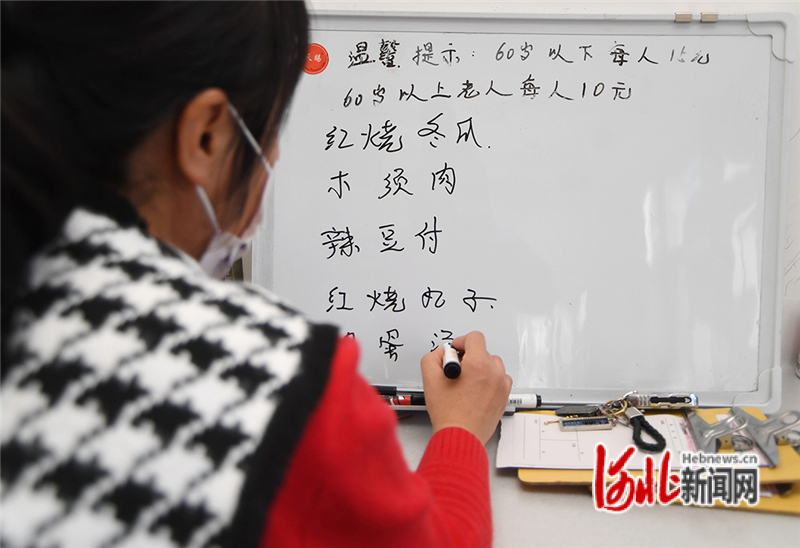 温馨提示:60岁以下每人15元
60岁以上老人每人10元
红烧冬瓜.
木须肉
辣豆付
红烧丸子.
蛋
Hebnews.cn
河北新闻网